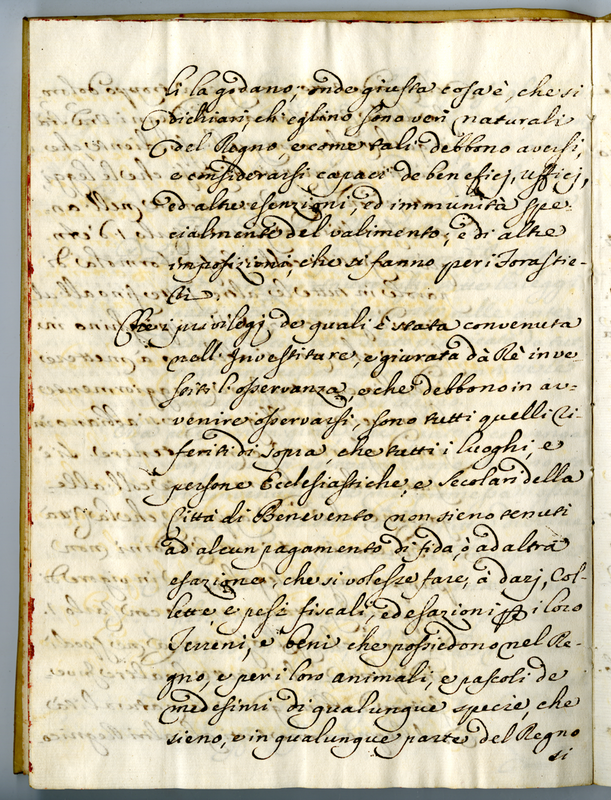 li la godano; onde giusta cosa è, che si
dichiari, ch'eglino sono veri naturali
del Regno, e come tali debbono aversi,
e considerarsi capaci de beneficj, ufficj,
ed altre esenzioni, ed immunità spe-
cialmente del valimento, e di altre
imposizioni, che si fanno per i Forastie-
ri
Che i privilegj de quali è stata convenuta
nell'Investiture, e giurata dà Rè inve
stiti l'osservanza, e che debbono in av-
venire osservarsi, sono tutti quelli ri-
feriti di sopra, che tutti i luoghi, e
persone Ecclesiastiche, e Secolari della
Città di Benevento non sieno tenuti
ad alcun pagamento di fida, ò ad altra
esazione, che si volesse fare, à dazj, Col-
lette, e pesi fiscali, ed esazioni p i loro
Terreni, e beni che possiedono nel Re-
gno, e per i loro animali, e pascoli de
medesimi di qualunque specie, che
sieno, e in qualunque parte del Regno
si